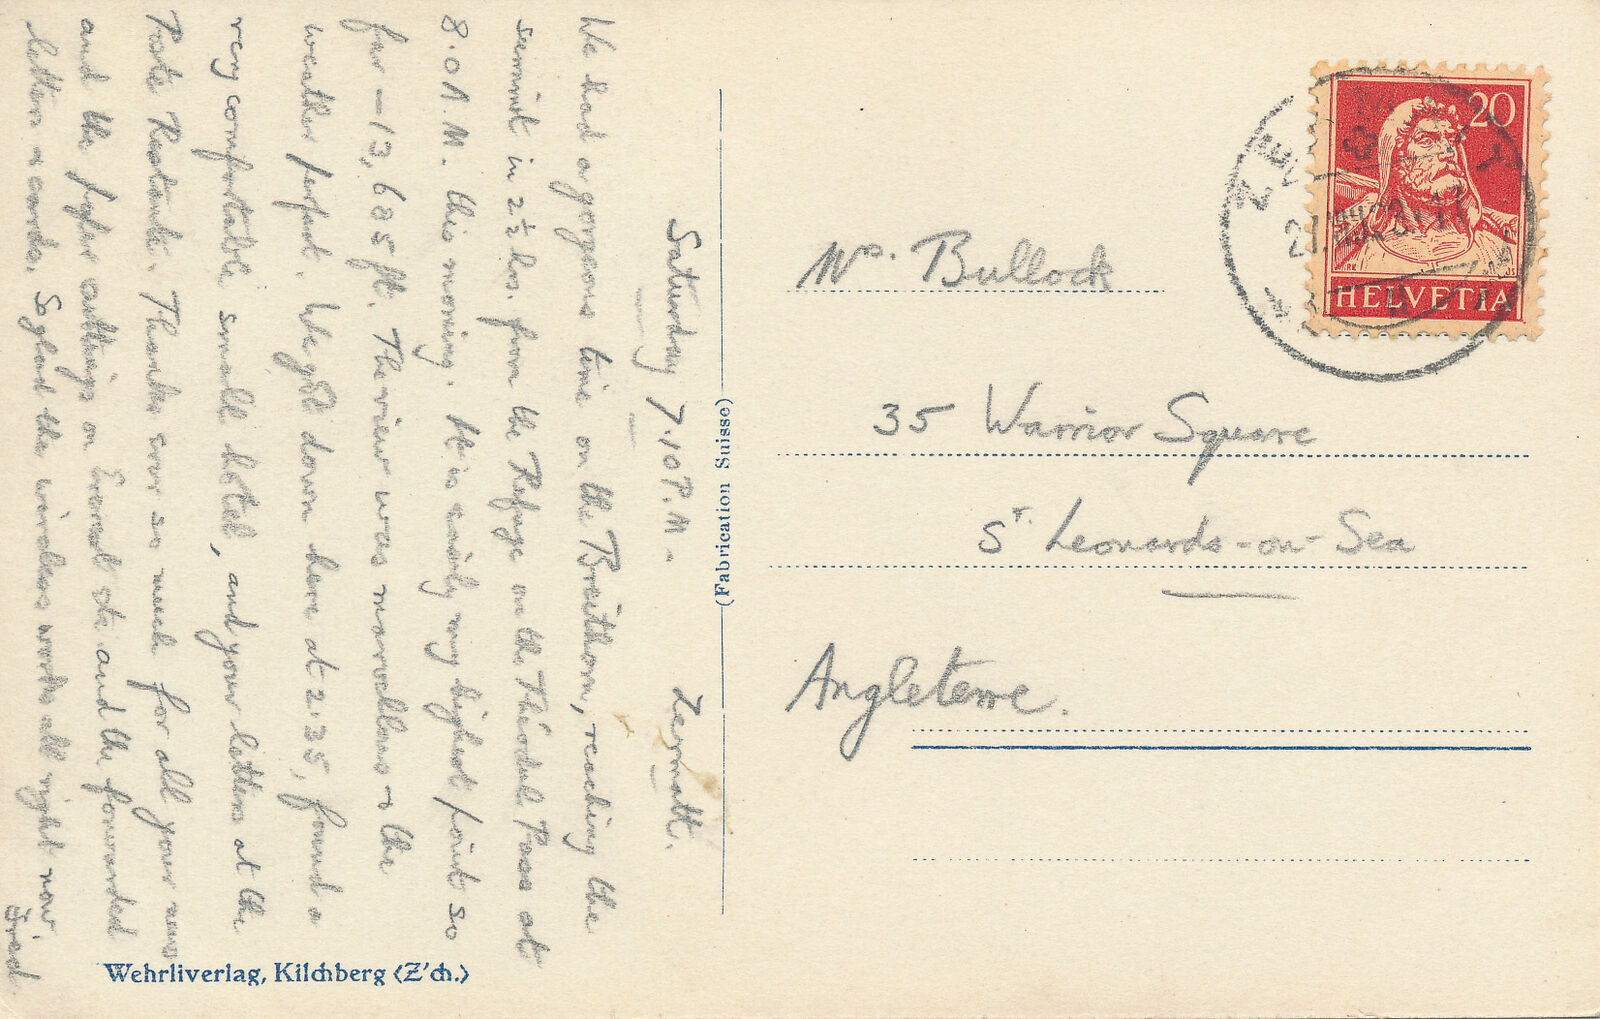 Saturday 7.10 P.M. Zermatt.
We had a gorgeous time on the Breithorn, reaching the
summit in 2½ hrs. from the Refuge on the Théodule Pass at
8.0 A.M. this morning. It is easily my highest point so
far — 13,685 ft. The view was marvellous & the
weather perfect. We got down here at 2.35, found a
very comfortable small hotel, and your letters at the
Poste Restante. Thanks ever so much for all your news
and the paper cuttings on Everest etc and the forwarded
letters & cards. So glad the wireless works all right now.
(Fabrication Suisse)
Wehrliverlag, Kilchberg (Z'ch.)
20
HELVETIA
ZERMATT
Mrs. Bullock
35 Warrior Square
St. Leonards-on-Sea
Angleterre.